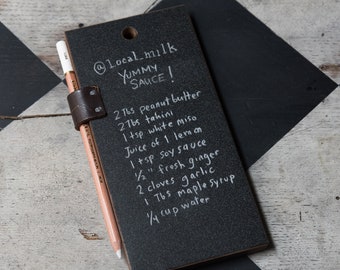 @local_milk
YUMMY
SAUCE!
2 Tbs peanut butter
2 Tbs tahini
1 tsp white miso
Juice of 1 lemon
1 tsp soy sauce
1/2" fresh ginger
2 cloves garlic
1 Tbs maple syrup
1/4 cup water